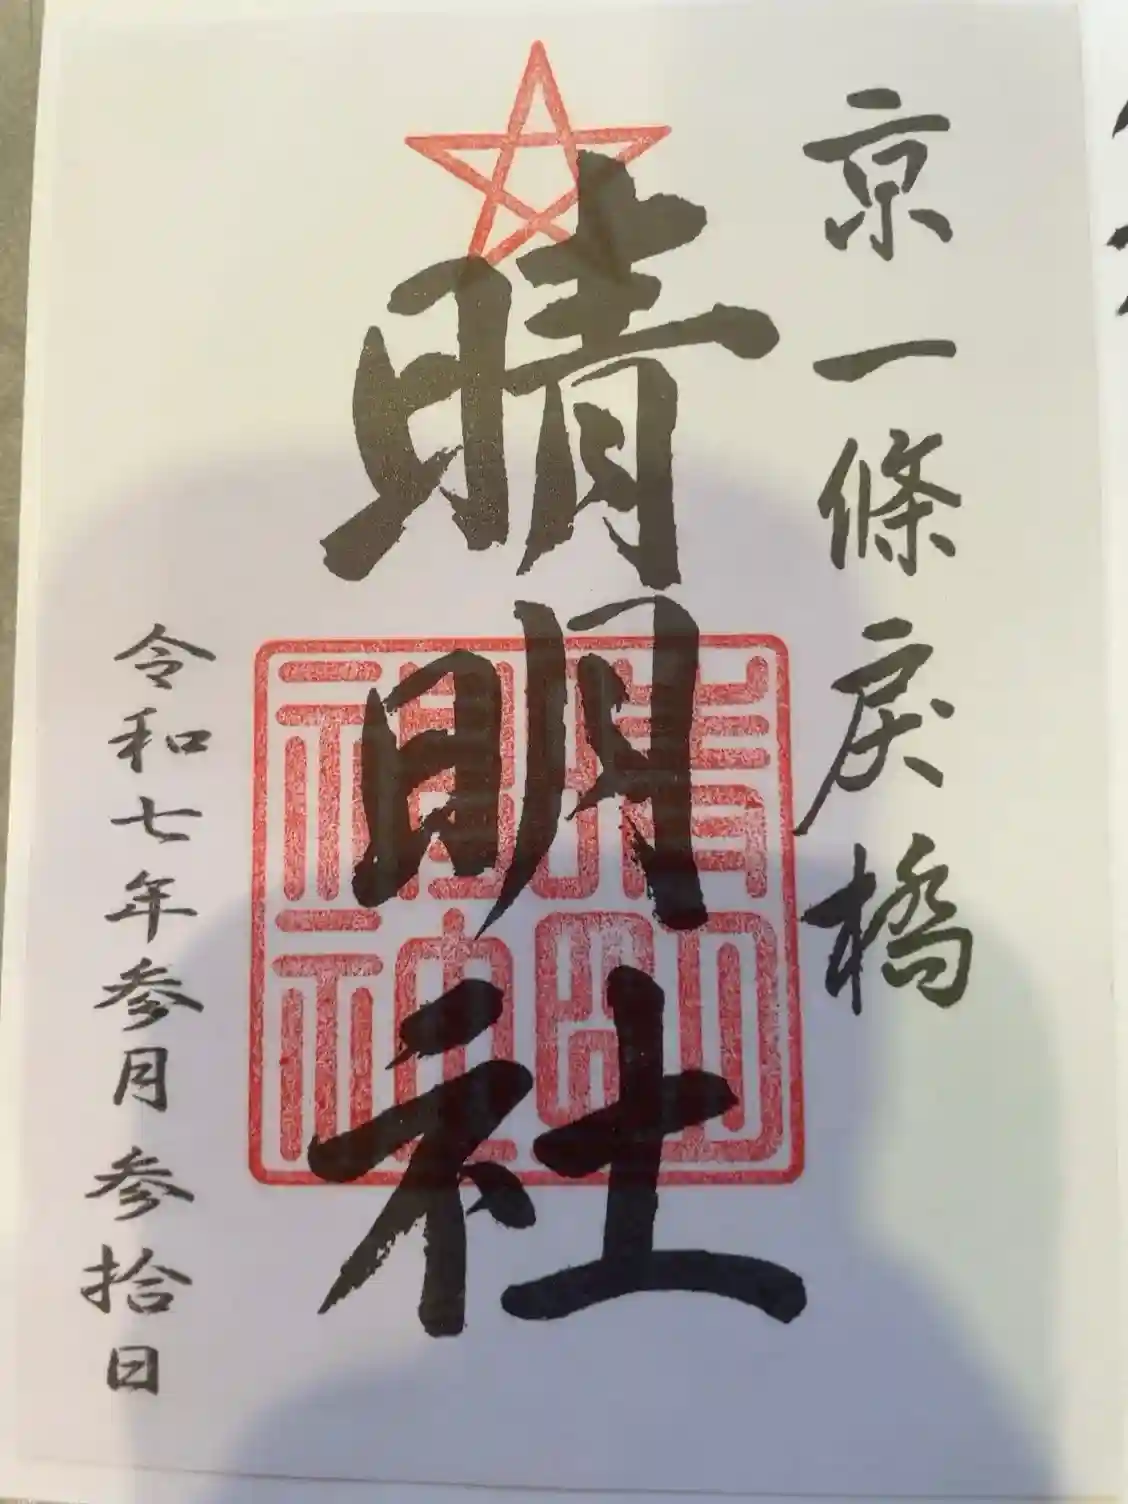 京一條戻橋
晴明社
晴明神社
令和七年参月参拾日